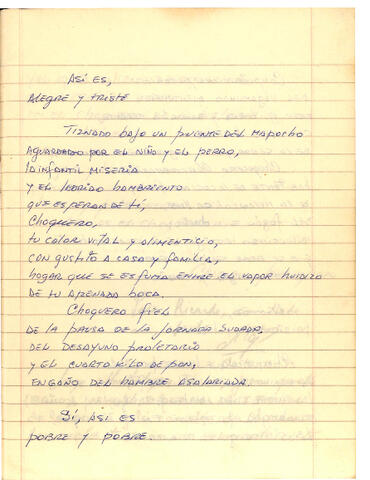 Así es,
Alegre y triste
Tiznado bajo un puente del Mapocho
Aguardado por el niño y el perro,
la infantil miseria
y el ladrido hambriento
que esperan de ti,
Choquero,
tu calor vital y alimenticio,
con gustito a casa y familia,
hogar que se esfuma entre el vapor huidizo
de tu apenada boca.
Choquero fiel
de la pausa de la jornada sudada,
del desayuno proletario
y el cuarto kilo de pan,
engaño del hambre asalariada.
Sí, así es
pobre y pobre.